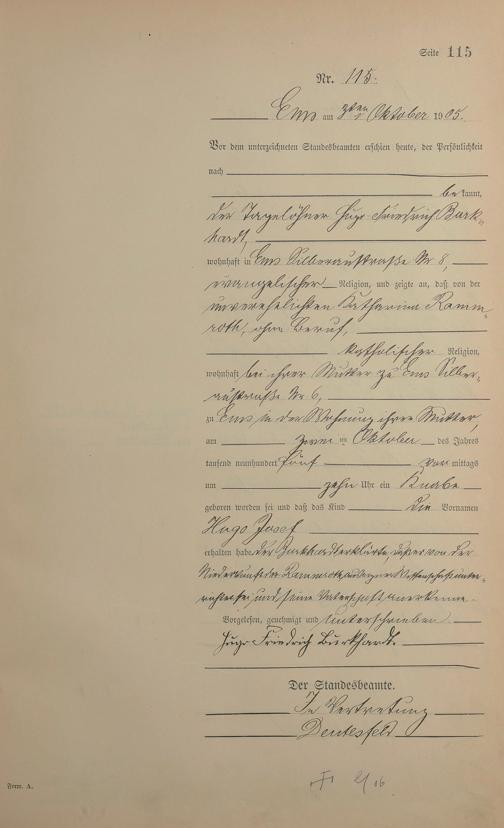 Seite 115
Nr. 115.
Ems am 3ten Oktober 1905.
Vor dem unterzeichneten Standesbeamten erschien heute, der Persönlichkeit
nach
bekannt,
der Tagelöhner Hugo Friedrich Burk-
hardt,
wohnhaft in Ems Silberaustraße Nr 8,
evangelischer Religion, und zeigte an, daß von der
unverehelichten Katharina Ramm-
roth, ohne Beruf,
katholischer Religion,
wohnhaft bei ihrer Mutter zu Ems Silber-
austraße Nr 6,
zu Ems in der Wohnung ihrer Mutter,
am zweiten Oktober des Jahres
tausend neunhundert fünf vormittags
um zehn Uhr ein Knabe
geboren worden sei und daß das Kind die Vornamen
Hugo Josef
erhalten habe. Der Burkhardt erklärte, daß er von der
Niederkunft der Rammroth aus eigner Wissenschaft unter-
richtet sei, und seine Vaterschaft anerkenne.
Vorgelesen, genehmigt und unterschrieben
Hugo Friedrich Burkhardt.
Der Standesbeamte.
In Vertretung
Form. A.